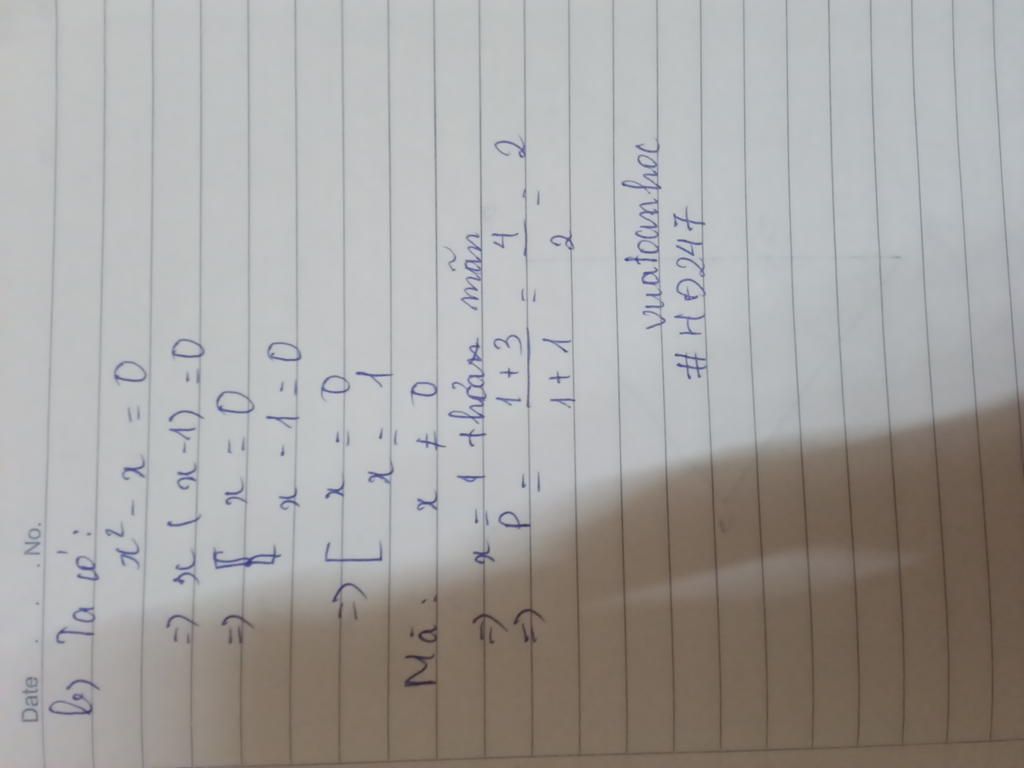 Date . . . No.
b) Ta có:
x² - x = 0
=> x(x-1) = 0
=> [ x = 0
x - 1 = 0
=> [ x = 0
x = 1
Mà: x ≠ 0
=> x = 1 thỏan mãn
=> P = \frac{1+3}{1+1} = \frac{4}{2} = 2
vuatoanhoc
# HĐ247